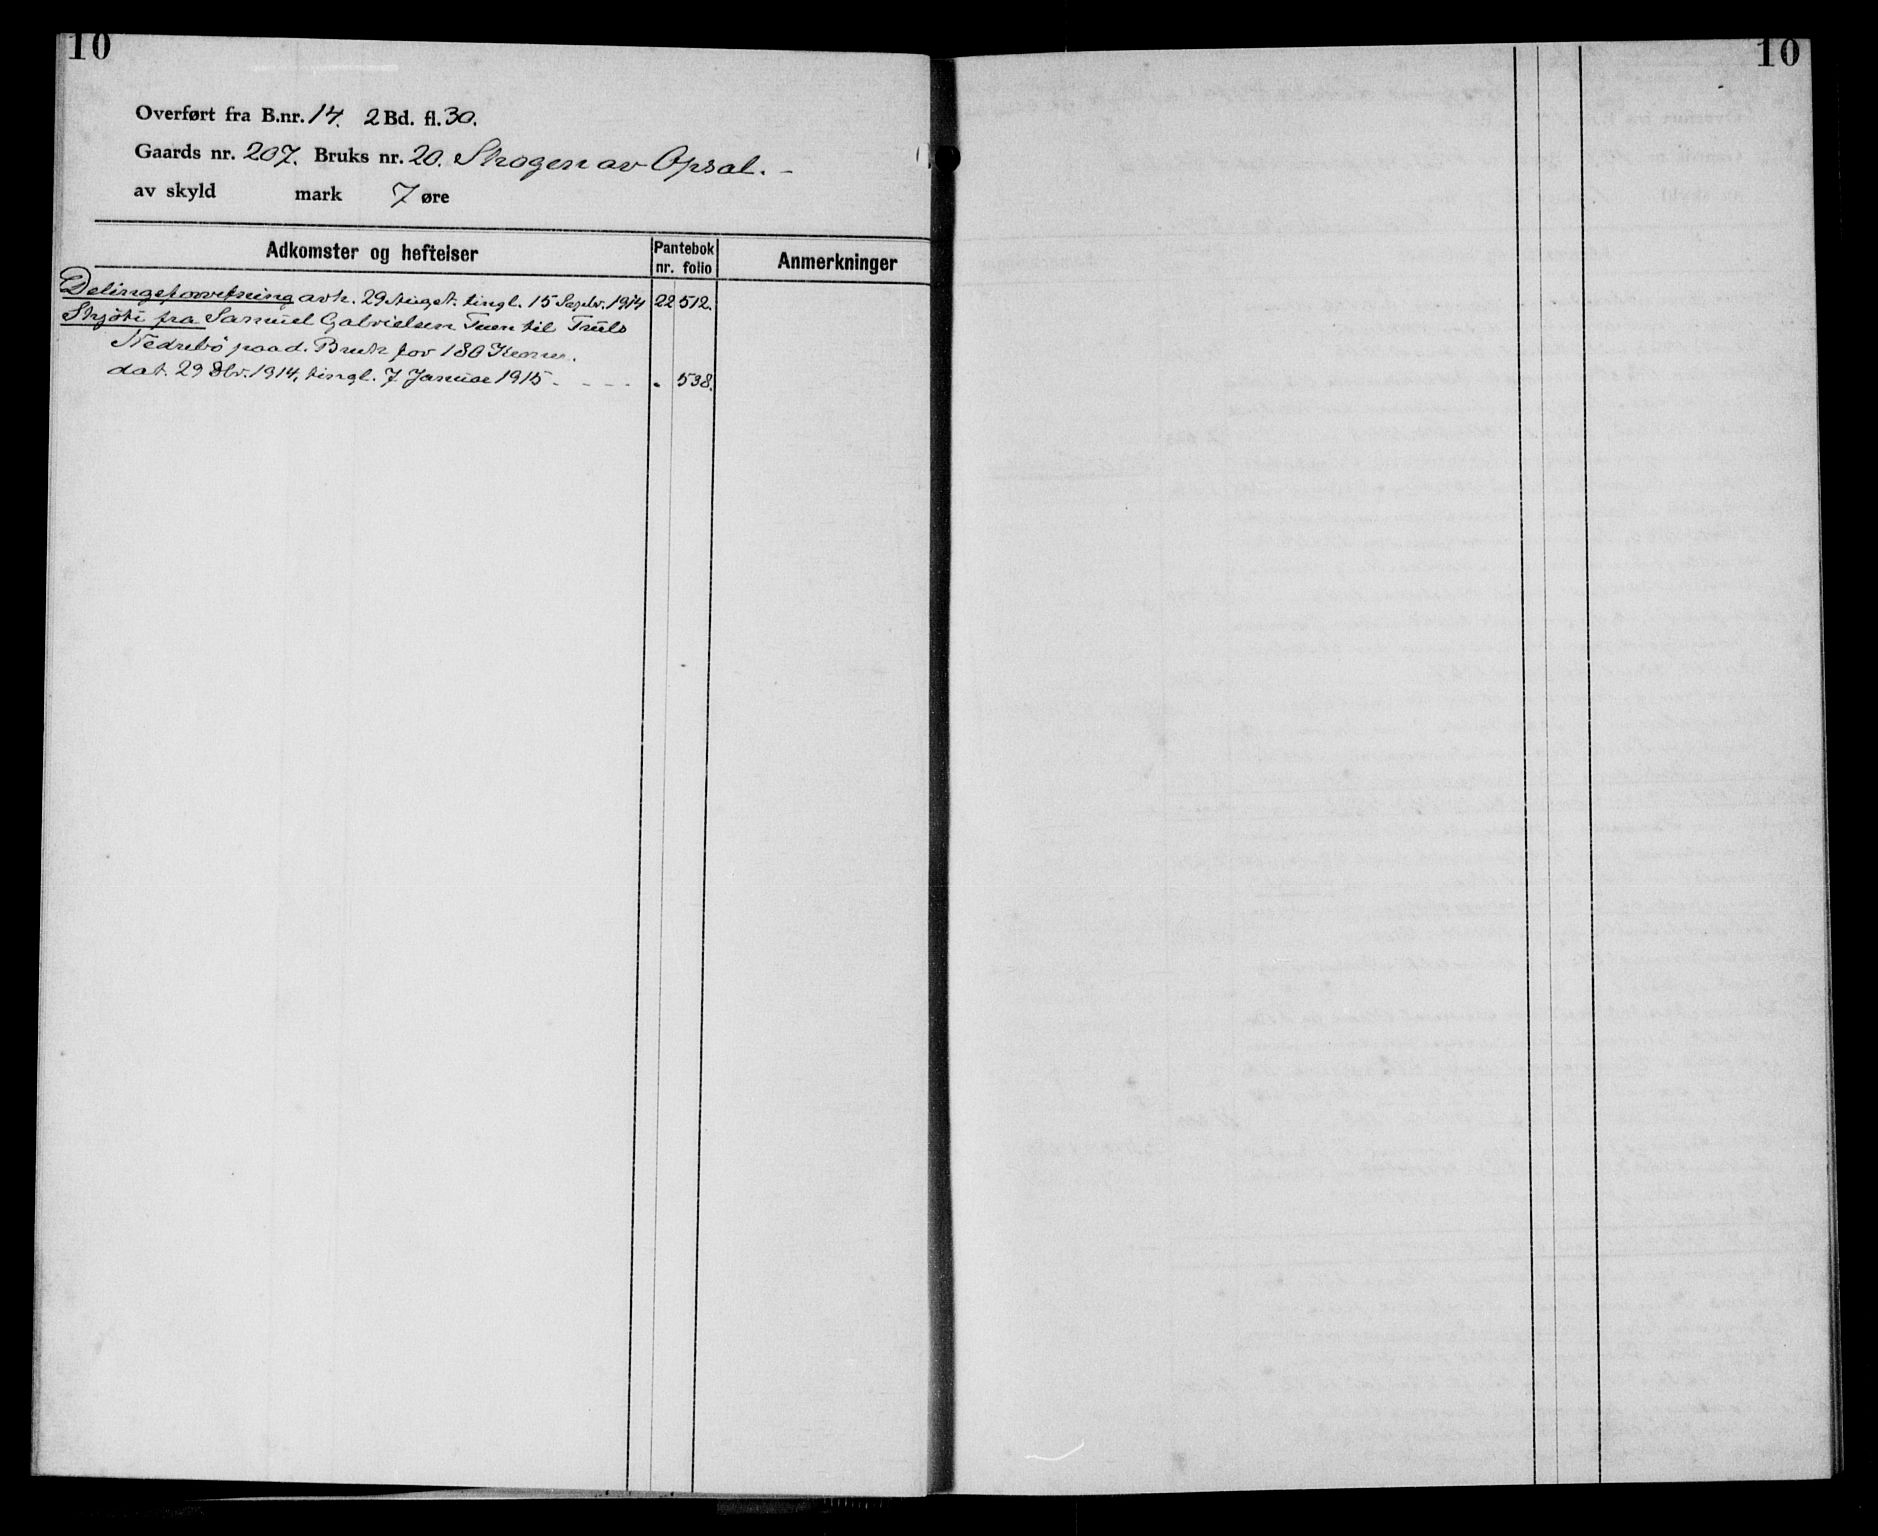 10
10
Overført fra B.nr. 14. 2 Bd. fl. 30.
Gaards nr. 207. Bruks nr. 20. Skogen av Opsal. -
av skyld mark 7 øre
Adkomster og heftelser
Pantebok
nr. folio
Anmerkninger
Delingsforretning avh. 29 August. tingl. 15 Septbr. 1914 22 512.
Skjøte fra Samuel Gabrielsen Tuen til Truls
Nedrebö paa d. Bruk for 180 Kroner.
dat. 29 Dbr. 1914, tingl. 7 Januar 1915 - - - - " 538.